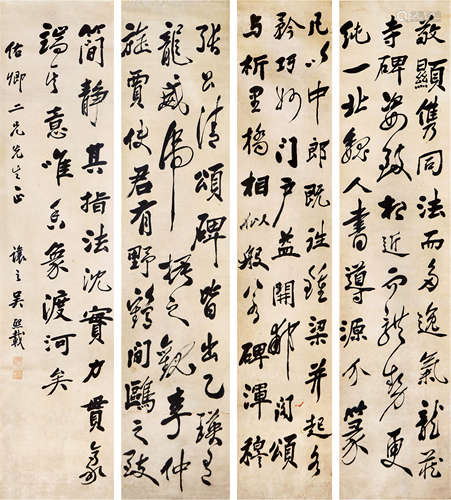 敬顯儁同法而多逸氣龍藏
寺碑姿致相近而體勢更
純一北魏人書導源分篆
凡以中郎既往鍾梁并起各
矜巧妙門戶益開郙閣頌
與析里橋相似般若碑渾穆
張公清頌碑皆出乙瑛有
龍威虎振之觀李仲
璇賈使君有野鶴間鷗之致
簡靜其指法沈實力貫毫
端意唯香象渡河矣
佑卿二兄先生正 讓之吳熙載